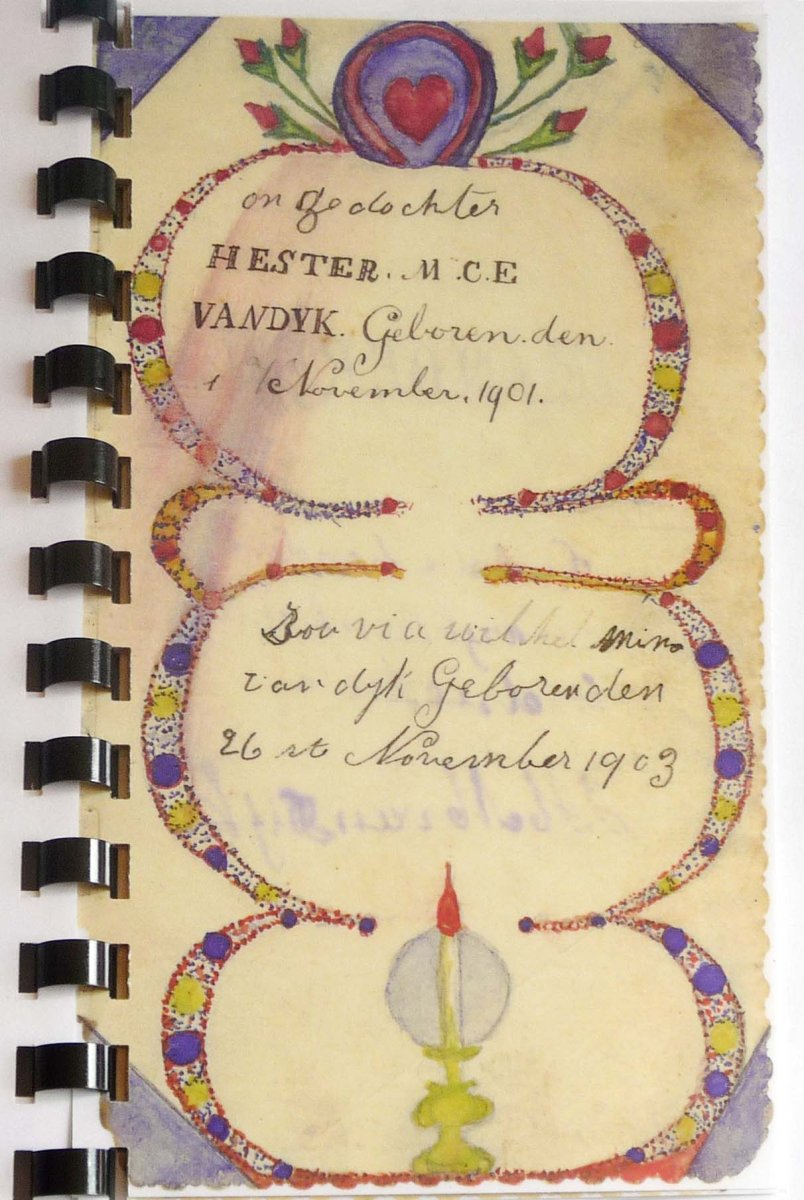 on ge dochter
HESTER. M.C.E
VANDYK. Geboren. den.
November. 1901.
via wilhel mina
van dyk Geboren den
26 st November 1903